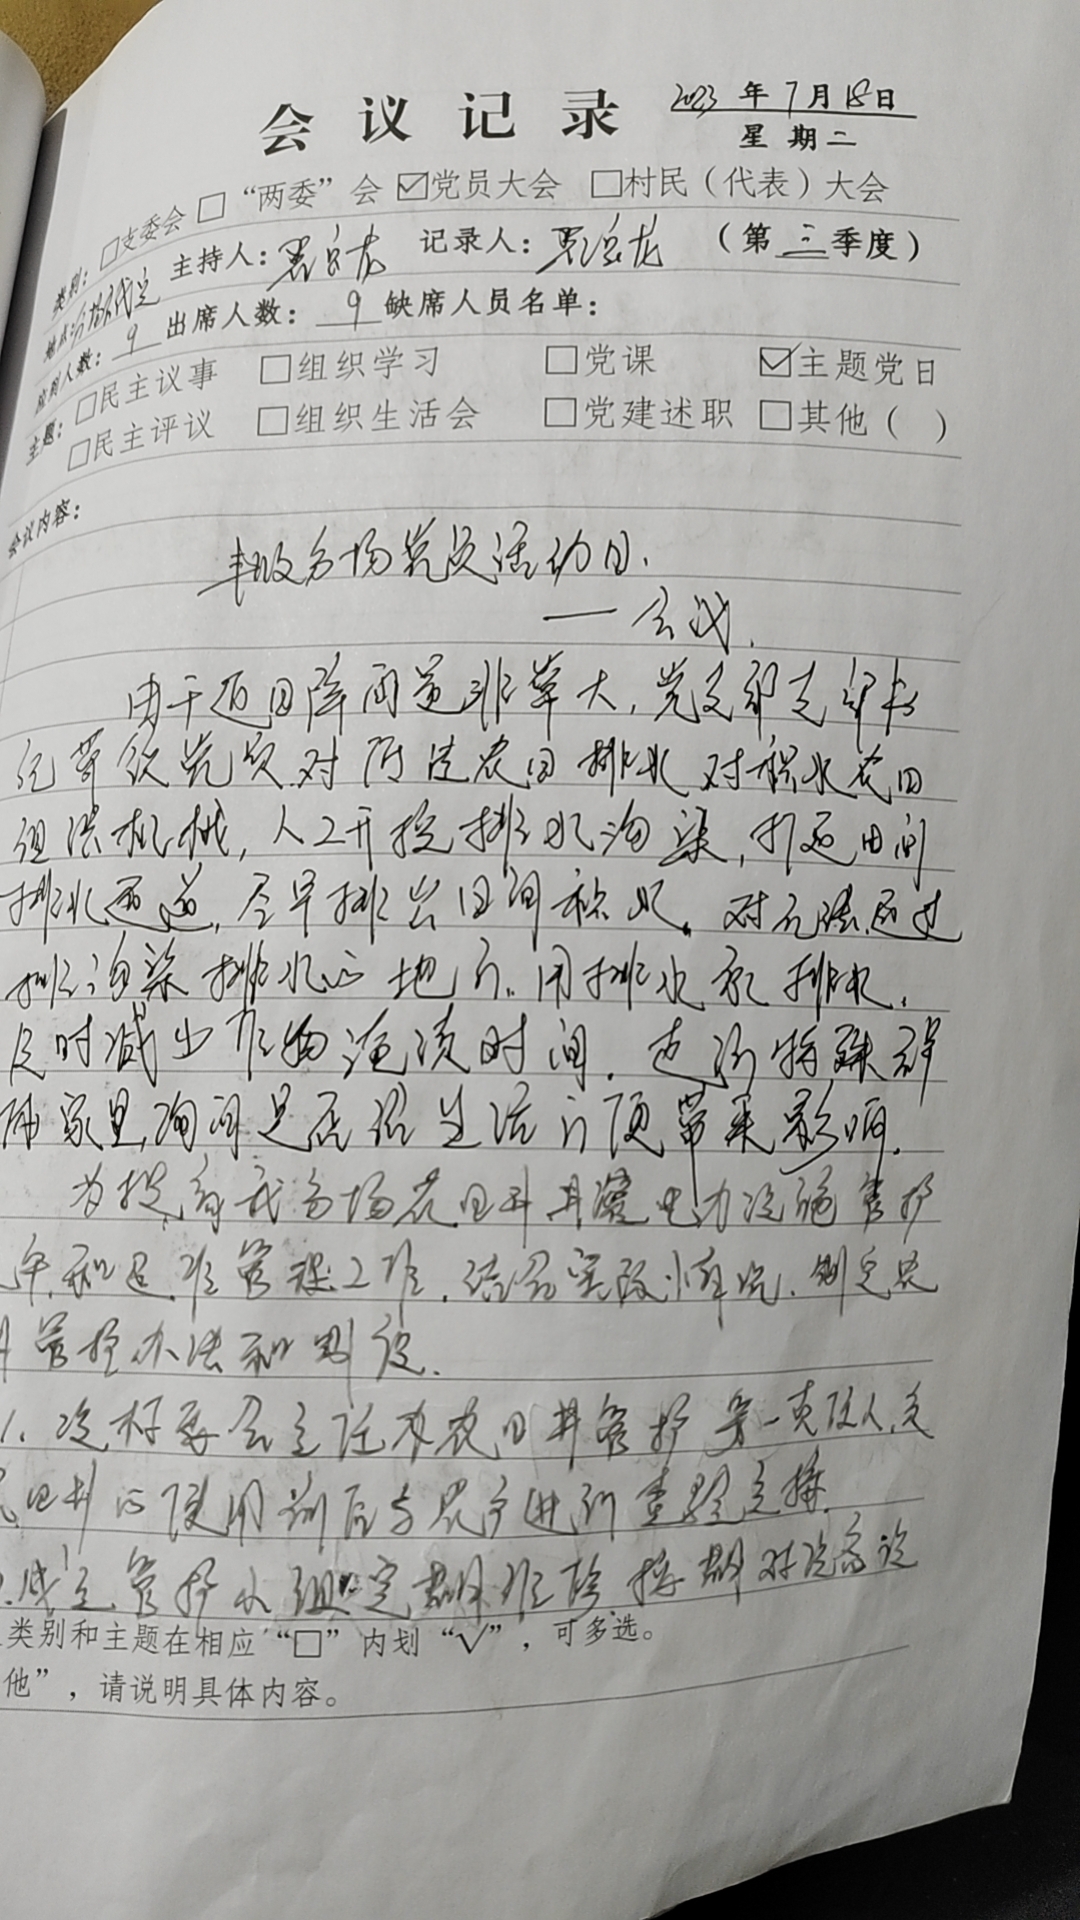 会议记录 2023年7月18日
星期二
类别：□支委会 □“两委”会 ☑党员大会 □村民（代表）大会
地点： 主持人： 记录人： （第三季度）
应到人数：9 出席人数：9 缺席人员名单：
主题：□民主议事 □组织学习 □党课 ☑主题党日
□民主评议 □组织生活会 □党建述职 □其他（ ）
会议内容：
分场党员活动日.
——会议.
由于近日降雨量非常大，党支部支部书
记带领党员对所走农田排水对积水农田
组织机械，人工开挖排水沟渠，打通田间
排水通道，尽早排出田间积水。对无法通过
排沟渠排水的地方.用排水泵排水.
及时减少作物淹渍时间. 走访特殊群
家里,询问是否给生活方便带来影响.
为提高我分场农田井井灌电力设施管护
和运作管理工作.结合实际情况.制定农
井管护办法和制度.
1. 村委会主任为农田井管护第一责任人,
田井的使用前后与农户进行查验交接.
成立管护小组,定期维修 对设备设
类别和主题在相应“□”内划“√”，可多选。
他”，请说明具体内容。